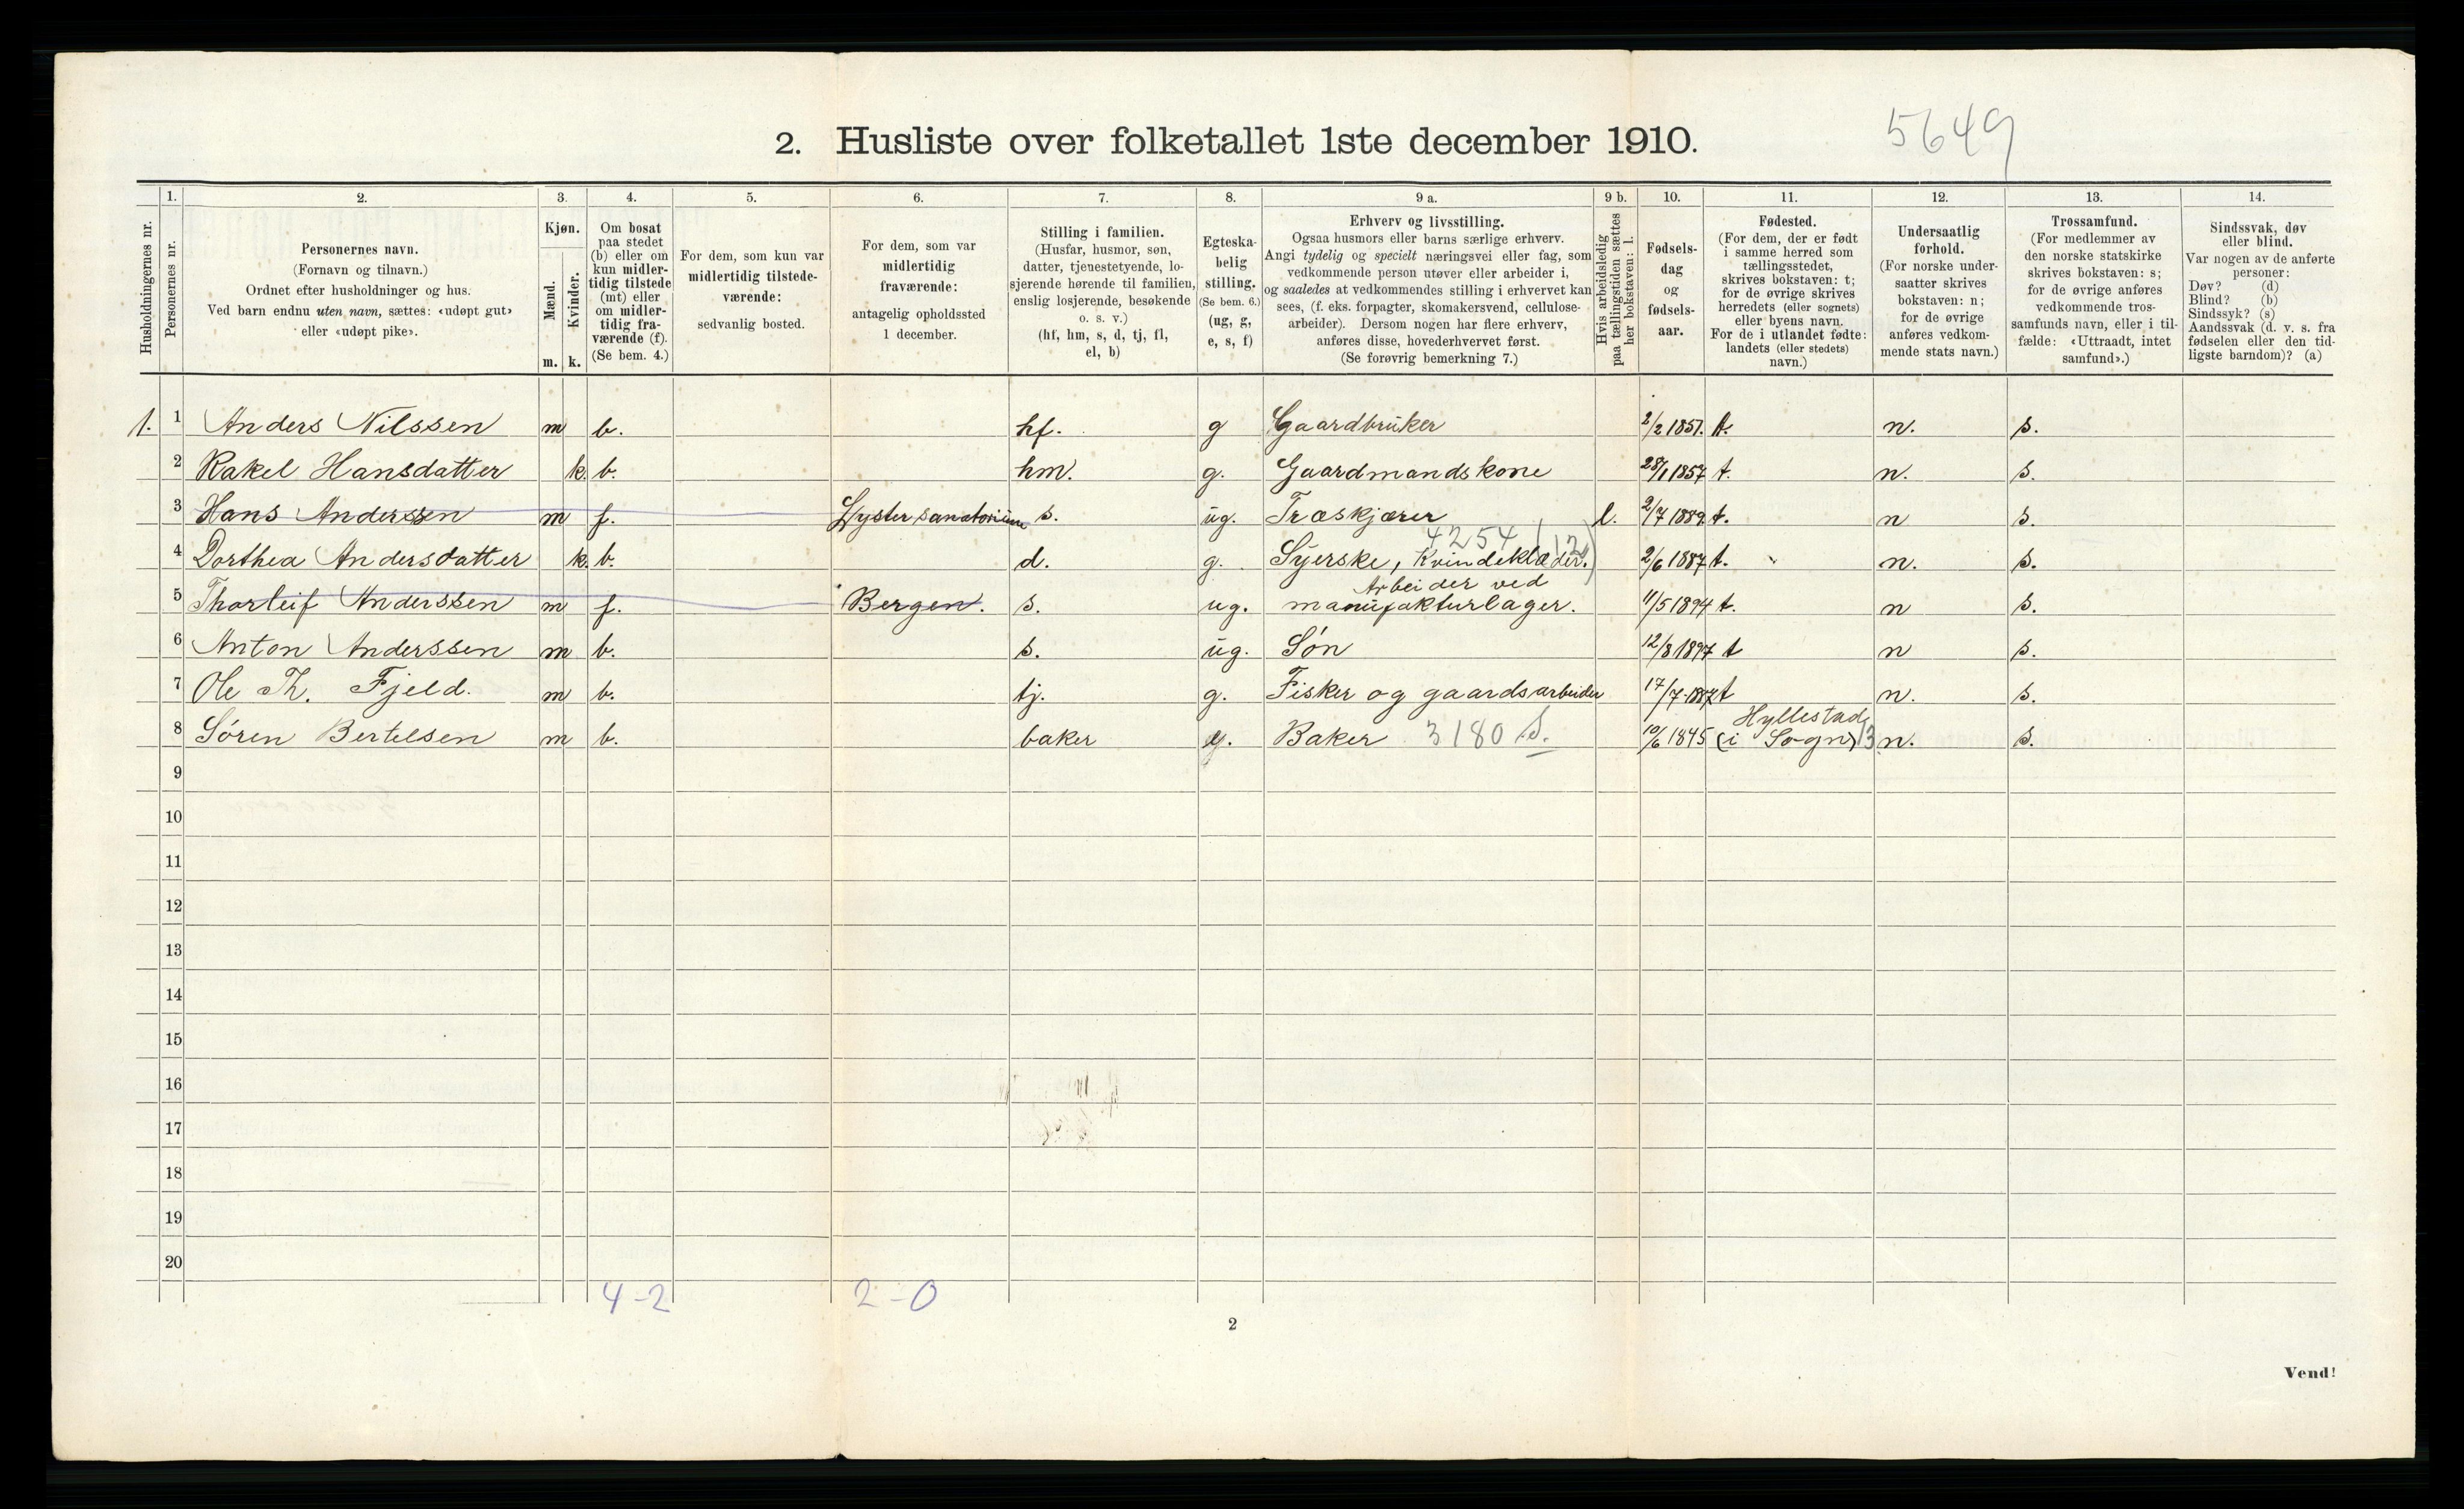 2. Husliste over folketallet 1ste december 1910.
5649
Husholdningernes nr.
1.
Personernes nr.
2.
Personernes navn.
(Fornavn og tilnavn.)
Ordnet efter husholdninger og hus.
Ved barn endnu uten navn, sættes: «udøpt gut»
eller «udøpt pike».
3.
Kjøn.
Mænd.
Kvinder.
m. k.
4.
Om bosat
paa stedet
(b) eller om
kun midler-
tidig tilstede
(mt) eller
om midler-
tidig fra-
værende (f).
(Se bem. 4.)
5.
For dem, som kun var
midlertidig tilstede-
værende:
sedvanlig bosted.
6.
For dem, som var
midlertidig
fraværende:
antagelig opholdssted
1 december.
7.
Stilling i familien.
(Husfar, husmor, søn,
datter, tjenestetyende, lo-
sjerende hørende til familien,
enslig losjerende, besøkende
o. s. v.)
(hf, hm, s, d, tj, fl,
el, b)
8.
Egteska-
belig
stilling.
(Se bem. 6.)
(ug, g,
e, s, f)
9 a.
Erhverv og livsstilling.
Ogsaa husmors eller barns særlige erhverv.
Angi tydelig og specielt næringsvei eller fag, som
vedkommende person utøver eller arbeider i,
og saaledes at vedkommendes stilling i erhvervet kan
sees, (f. eks. forpagter, skomakersvend, cellulose-
arbeider). Dersom nogen har flere erhverv,
anføres disse, hovederhvervet først.
(Se forøvrig bemerkning 7.)
9 b.
Hvis arbeidsledig
paa tællingstiden sættes
her bokstaven: l.
10.
Fødsels-
dag
og
fødsels-
aar.
11.
Fødested.
(For dem, der er født
i samme herred som
tællingsstedet,
skrives bokstaven: t;
for de øvrige skrives
herredets (eller sognets)
eller byens navn.
For de i utlandet fødte:
landets (eller stedets)
navn.)
12.
Undersaatlig
forhold.
(For norske under-
saatter skrives
bokstaven: n;
for de øvrige
anføres vedkom-
mende stats navn.)
13.
Trossamfund.
(For medlemmer av
den norske statskirke
skrives bokstaven: s;
for de øvrige anføres
vedkommende tros-
samfunds navn, eller i til-
fælde: «Uttraadt, intet
samfund».)
14.
Sindssvak, døv
eller blind.
Var nogen av de anførte
personer:
Døv? (d)
Blind? (b)
Sindssyk? (s)
Aandssvak (d. v. s. fra
fødselen eller den tid-
ligste barndom)? (a)
1. 1 Anders Nilssen m b. hf. g Gaardbruker 2/2 1851. t. n. s.
2 Rakel Hansdatter k. b. hm. g. Gaardmandskone 28/1 1857 t. n. s.
3 Hans Anderssen m f. Lyster sanatorium s. ug. Træskjærer l. 2/7 1889 t. n s.
4254 (12)
4 Dorthea Andersdatter k. b. d. g. Syerske, Kvindeklæder. 2/6 1887 t. n. s.
Arbeider ved
5 Thorleif Anderssen m f. Bergen. s. ug. manufakturlager. 11/5 1894 t. n s.
6 Anton Anderssen m b. s. ug. Søn 12/8 1897 t n s.
7 Ole Th. Fjeld. m b. tj. g. Fisker og gaardsarbeider 17/7-1887 t n. s.
Hyllestad
8 Søren Bertelsen m b. baker g. Baker 3180 S. 10/6 1845 (i Sogn) 13 n. s.
9
10
11
12
13
14
15
16
17
18
19
20
4-2 2-0
2
Vend!